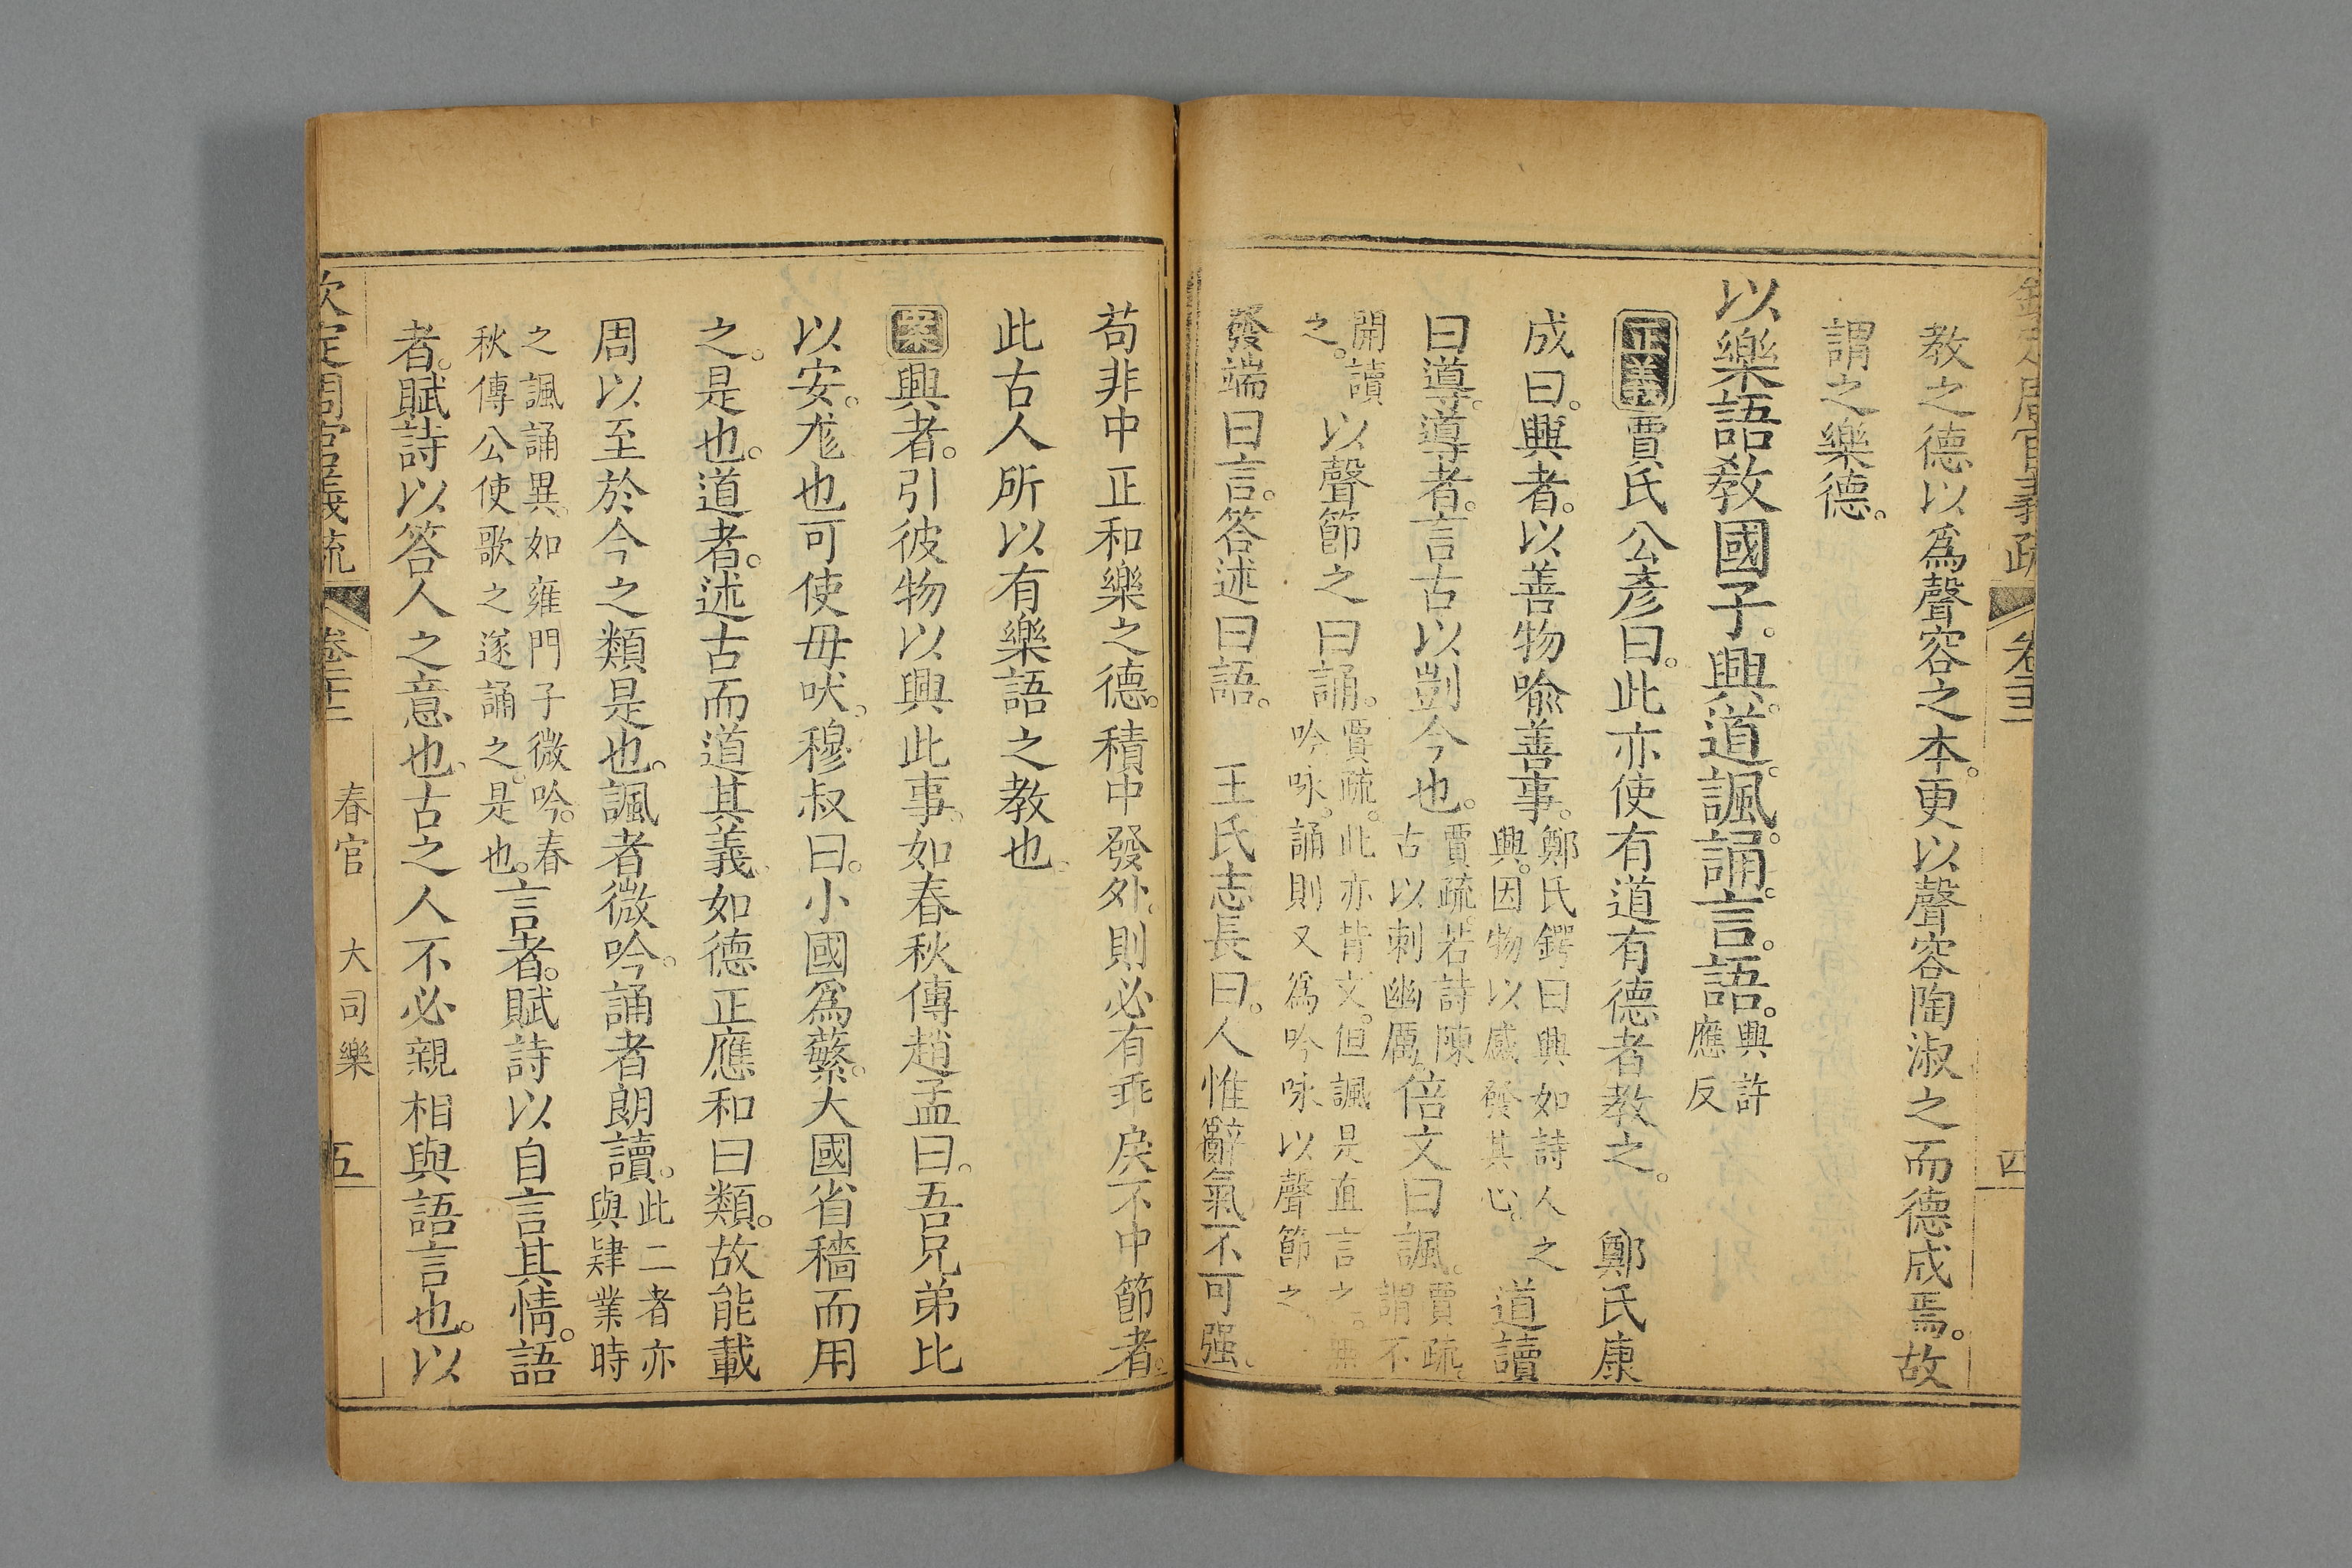 教之德以爲聲容之本。更以聲容陶淑之而德成焉。故
謂之樂德。
以樂語敎國子。興。道。諷。誦。言。語。興許
應反
正義賈氏公彥曰。此亦使有道有德者教之。 鄭氏康
成曰。興者。以善物喻善事。鄭氏鍔曰興如詩人之
興。因物以感發其心。道讀
曰導。導者。言古以剴今也。賈疏。若詩陳
古以刺幽厲。倍文曰諷。賈疏。
謂不
開讀
之。以聲節之曰誦。賈疏。此亦背文。但諷是直言之。無
吟咏。誦則又爲吟咏以聲節之
發端曰言。答述曰語。 王氏志長曰。人惟辭氣不可强。
苟非中正和樂之德。積中發外。則必有乖戾不中節者。
此古人所以有樂語之教也。
案興者。引彼物以興此事。如春秋傳趙孟曰。吾兄弟比
以安。尨也可使毋吠。穆叔曰。小國爲蘩。大國省穡而用
之。是也。道者。述古而道其義。如德正應和曰類。故能載
周以至於今之類是也。諷者微吟。誦者朗讀。此二者亦
與肄業時
之諷誦異。如雍門子微吟。春
秋傳公使歌之遂誦之。是也。言者。賦詩以自言其情。語
者。賦詩以答人之意也。古之人不必親相與語言也。以
欽定周官義疏 卷二十二 春官 大司樂 五